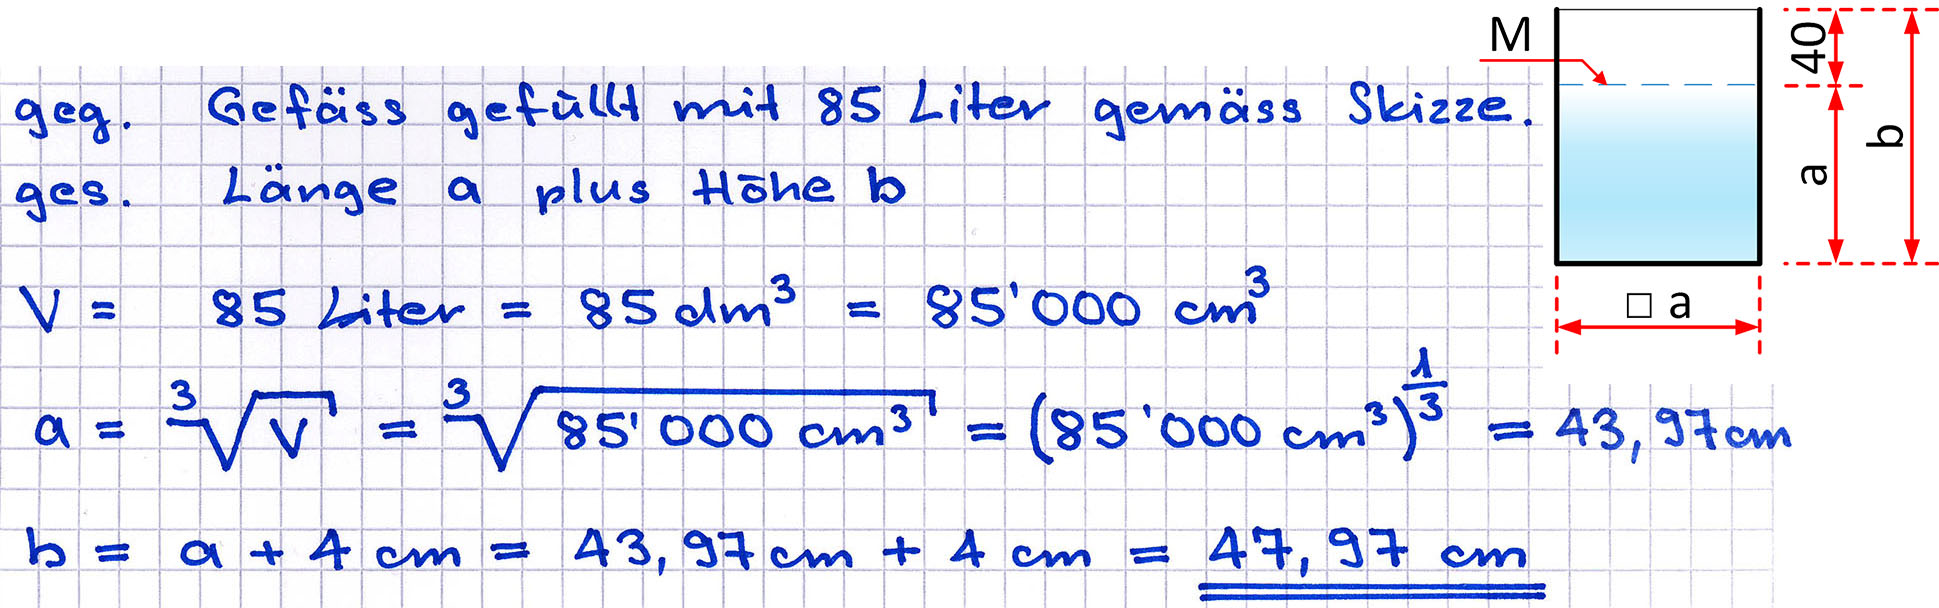 geg. Gefäss gefüllt mit 85 Liter gemäss Skizze.
ges. Länge a plus Höhe b
V = 85 Liter = 85 dm³ = 85'000 cm³
a = ³√V = ³√85'000 cm³ = (85'000 cm³)^1/3 = 43,97cm
b = a + 4 cm = 43,97cm + 4 cm = 47,97 cm
M
40
a
b
□ a